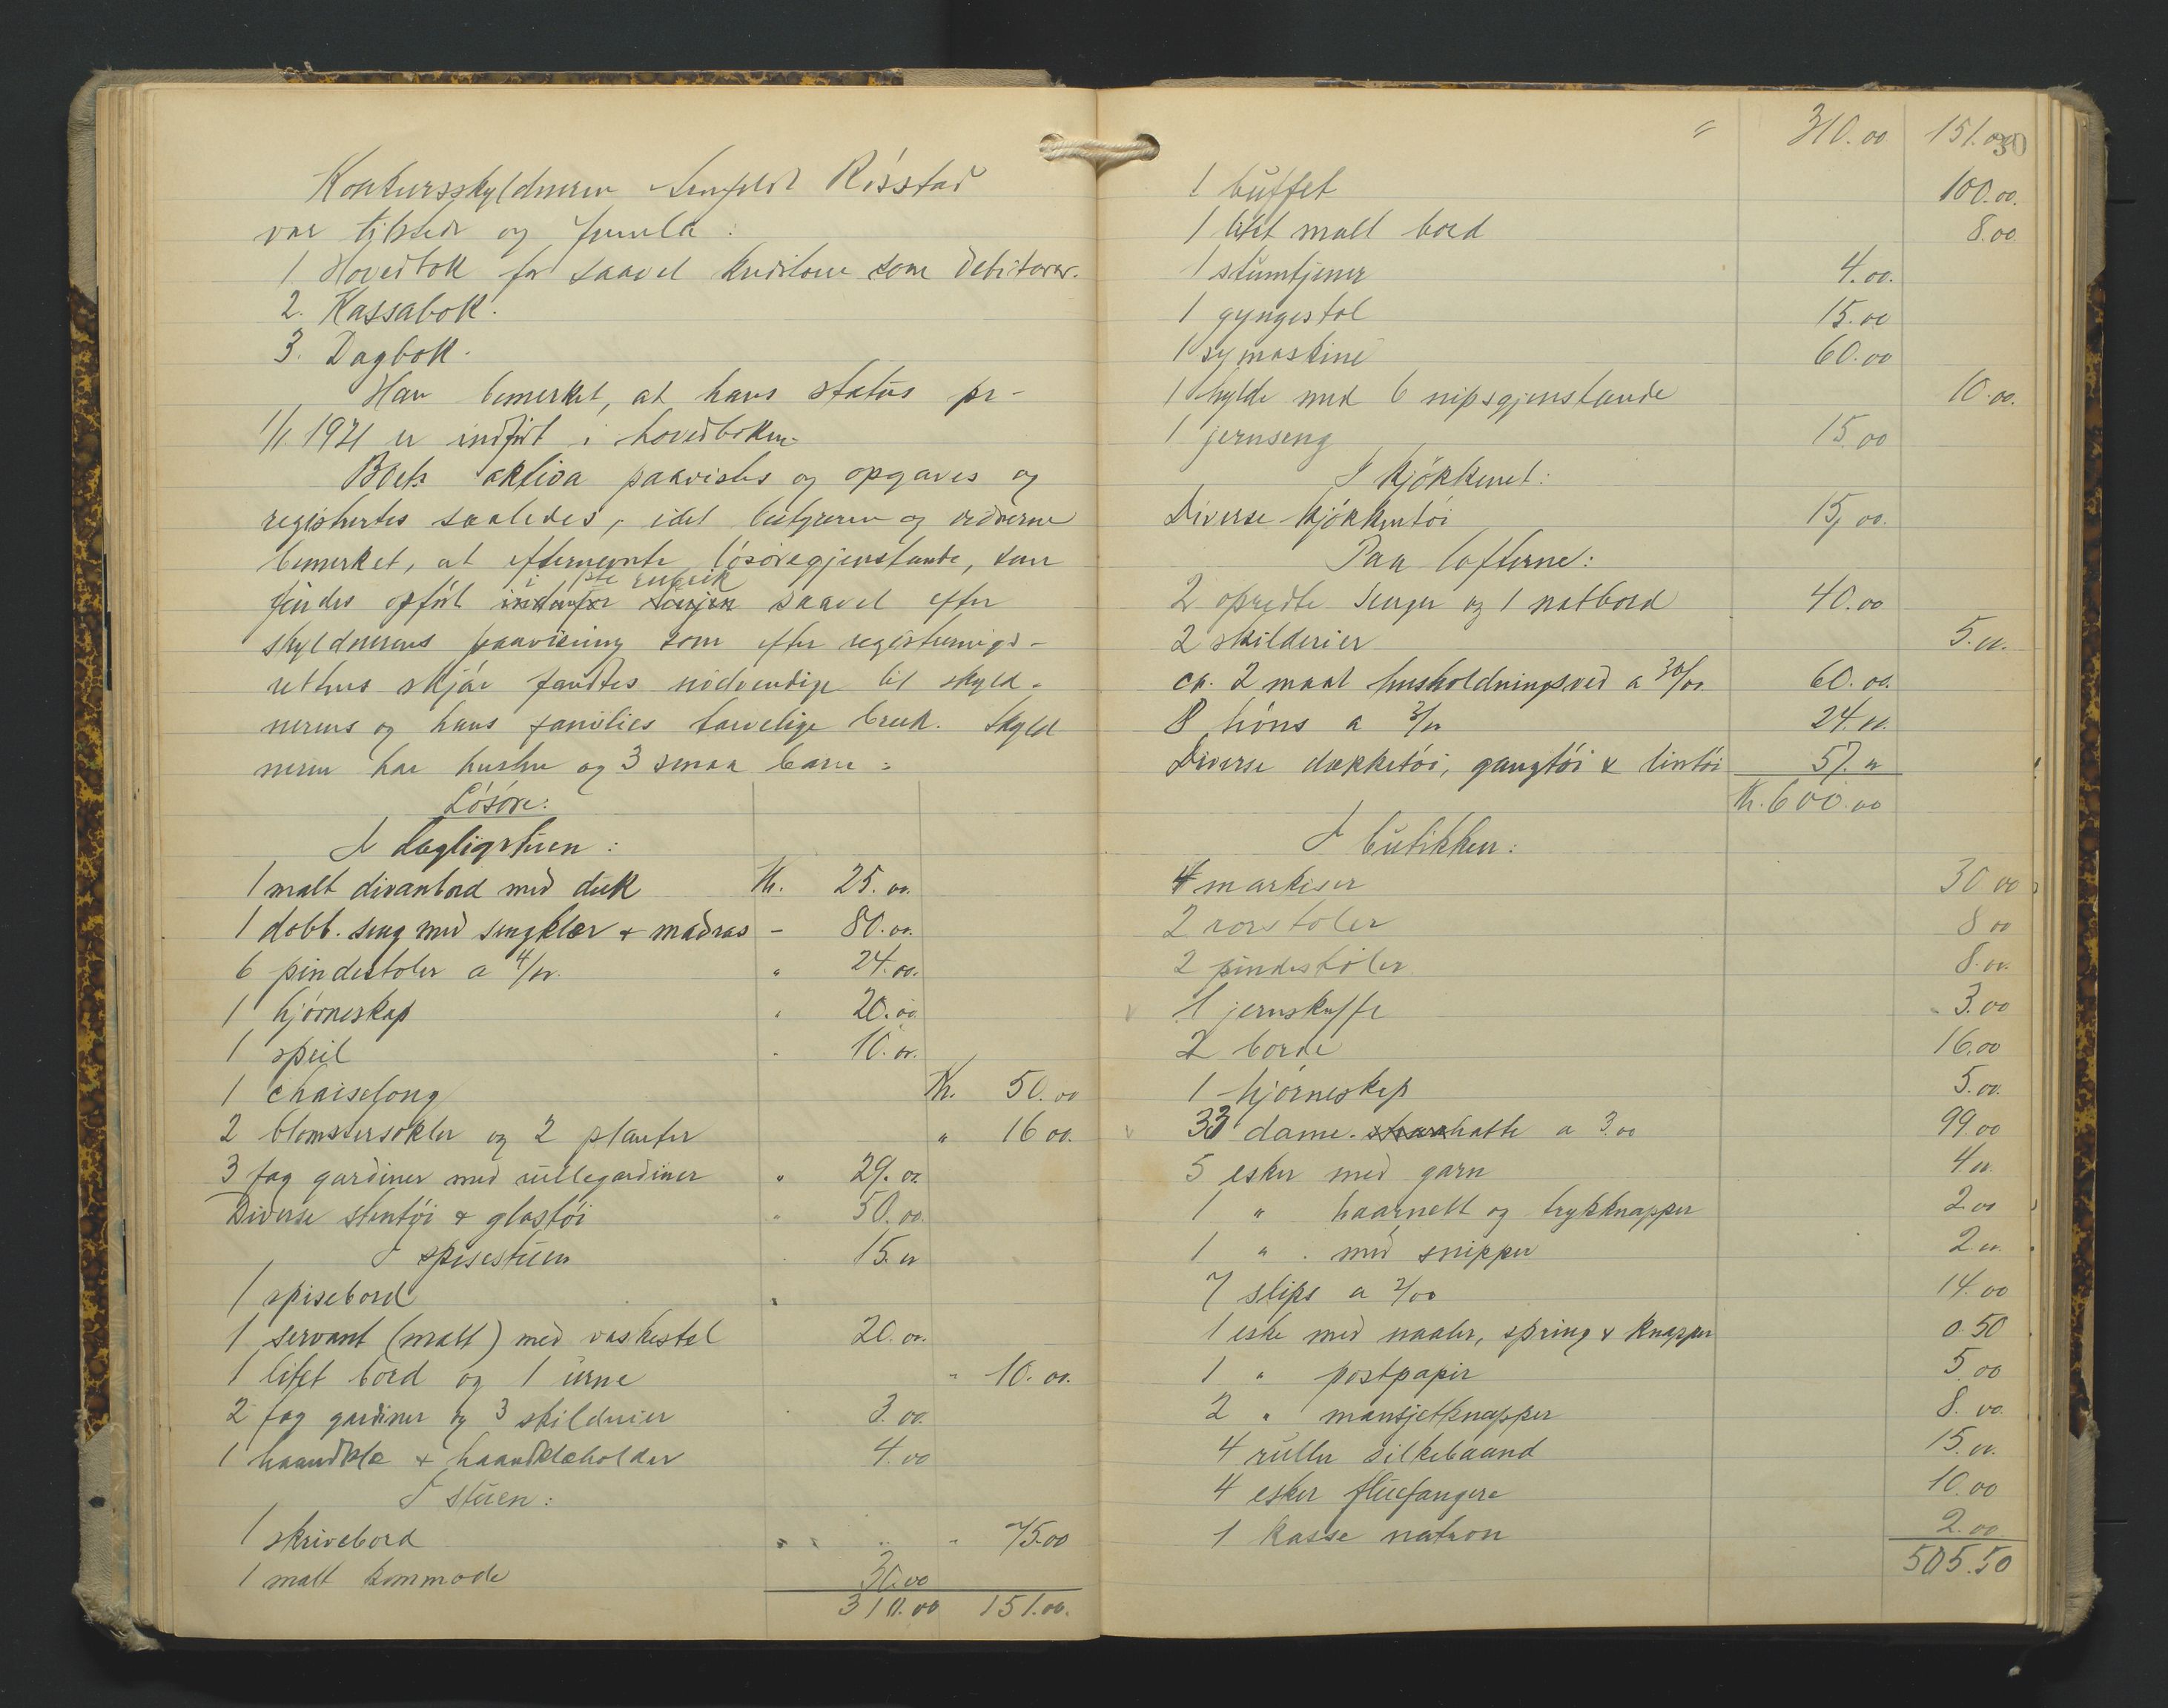 Konkursskyldneren Rösstad
var tilstede og fremla:
1 Hovedbok for saavel kreditorer som debitorer.
2. Kassabok.
3. Dagbok.
Han bemerket, at hans status pr-
1/1. 1921 er indført i hovedboken-
Boets aktiva paavistes og opgaves og
registrertes saaledes, idet bestyreren og vidnerne
bemerket, at efternevnte lösöregjenstande, som
findes opfört i 1ste rubrik saavel efter
skyldnerens paavisning som efter registrerings-
rettens skjön fandtes nödvendige til skyld-
nerens og hans families tarvelige bruk. Skyld
neren har hustru og 3 smaa barn:
Lösöre:
I dagligstuen:
1 malt divanbord med duk Kr. 25.00
1 dobb. seng med sengklær + madras - 80.00.
6 pindestoler a 4/00. " 24.00.
1 hjörneskap " 20.00
1 speil " 10.00.
1 chaiselong Kr. 50.00
2 blomstersokler og 2 planter " 16 00.
3 fag gardiner med rullegardiner " 29.00.
Diverse stentöi & glastöi " 50.00
I spisestuen 15.00
1 spisebord "
1 servant (malt) med vaskestel 20.00.
1 litet bord og 1 urne " 10.00.
2 fag gardiner og 3 skilderier 3.00.
1 haandklæ + haandklæholder 4.00
I stuen:
1 skrivebord " 75.00
1 malt kommode 30.00
310.00 151.00.
" 310.00 151.00
30
1 buffet 100.00.
1 litet malt bord 8.00
1 stumtjener 4.00.
1 gyngestol 15.00
1 symaskine 60.00
1 hylde med 6 nipsgjenstande 10.00.
1 jernseng 15.00
I kjökkenet:
Diverse kjökkentöi 15,00.
Paa lofterne:
2 opredte senger og 1 natbord 40.00
2 skilderier 5.00.
ca. 2 maal husholdningsved a 30/00 60.00.
8 höns a 3/00 24.00.
Diverse dækketöi, gangtöi & lintöi 57.00
Kr. 600.00
I butikken:
4 markiser 30 00
2 rorstoler 8 00
2 pindestoler 8.00.
1 jernskuffe 3.00
2 borde 16.00
1 hjörneskap 5.00.
33 dame-hatte a 3.00 99.00
5 esker med garn 4 00.
1 " haarnett og trykknapper 2.00
1 " med snipper 2 00.
7 slips a 2/00 14.00
1 eske med naaler, spring & knapper 0.50
1 " postpapir 5.00
2 " mansjetknapper 8.00
4 ruller silkebaand 15.00.
4 esker fluefangere 10.00
1 kasse natron 2.00
505.50